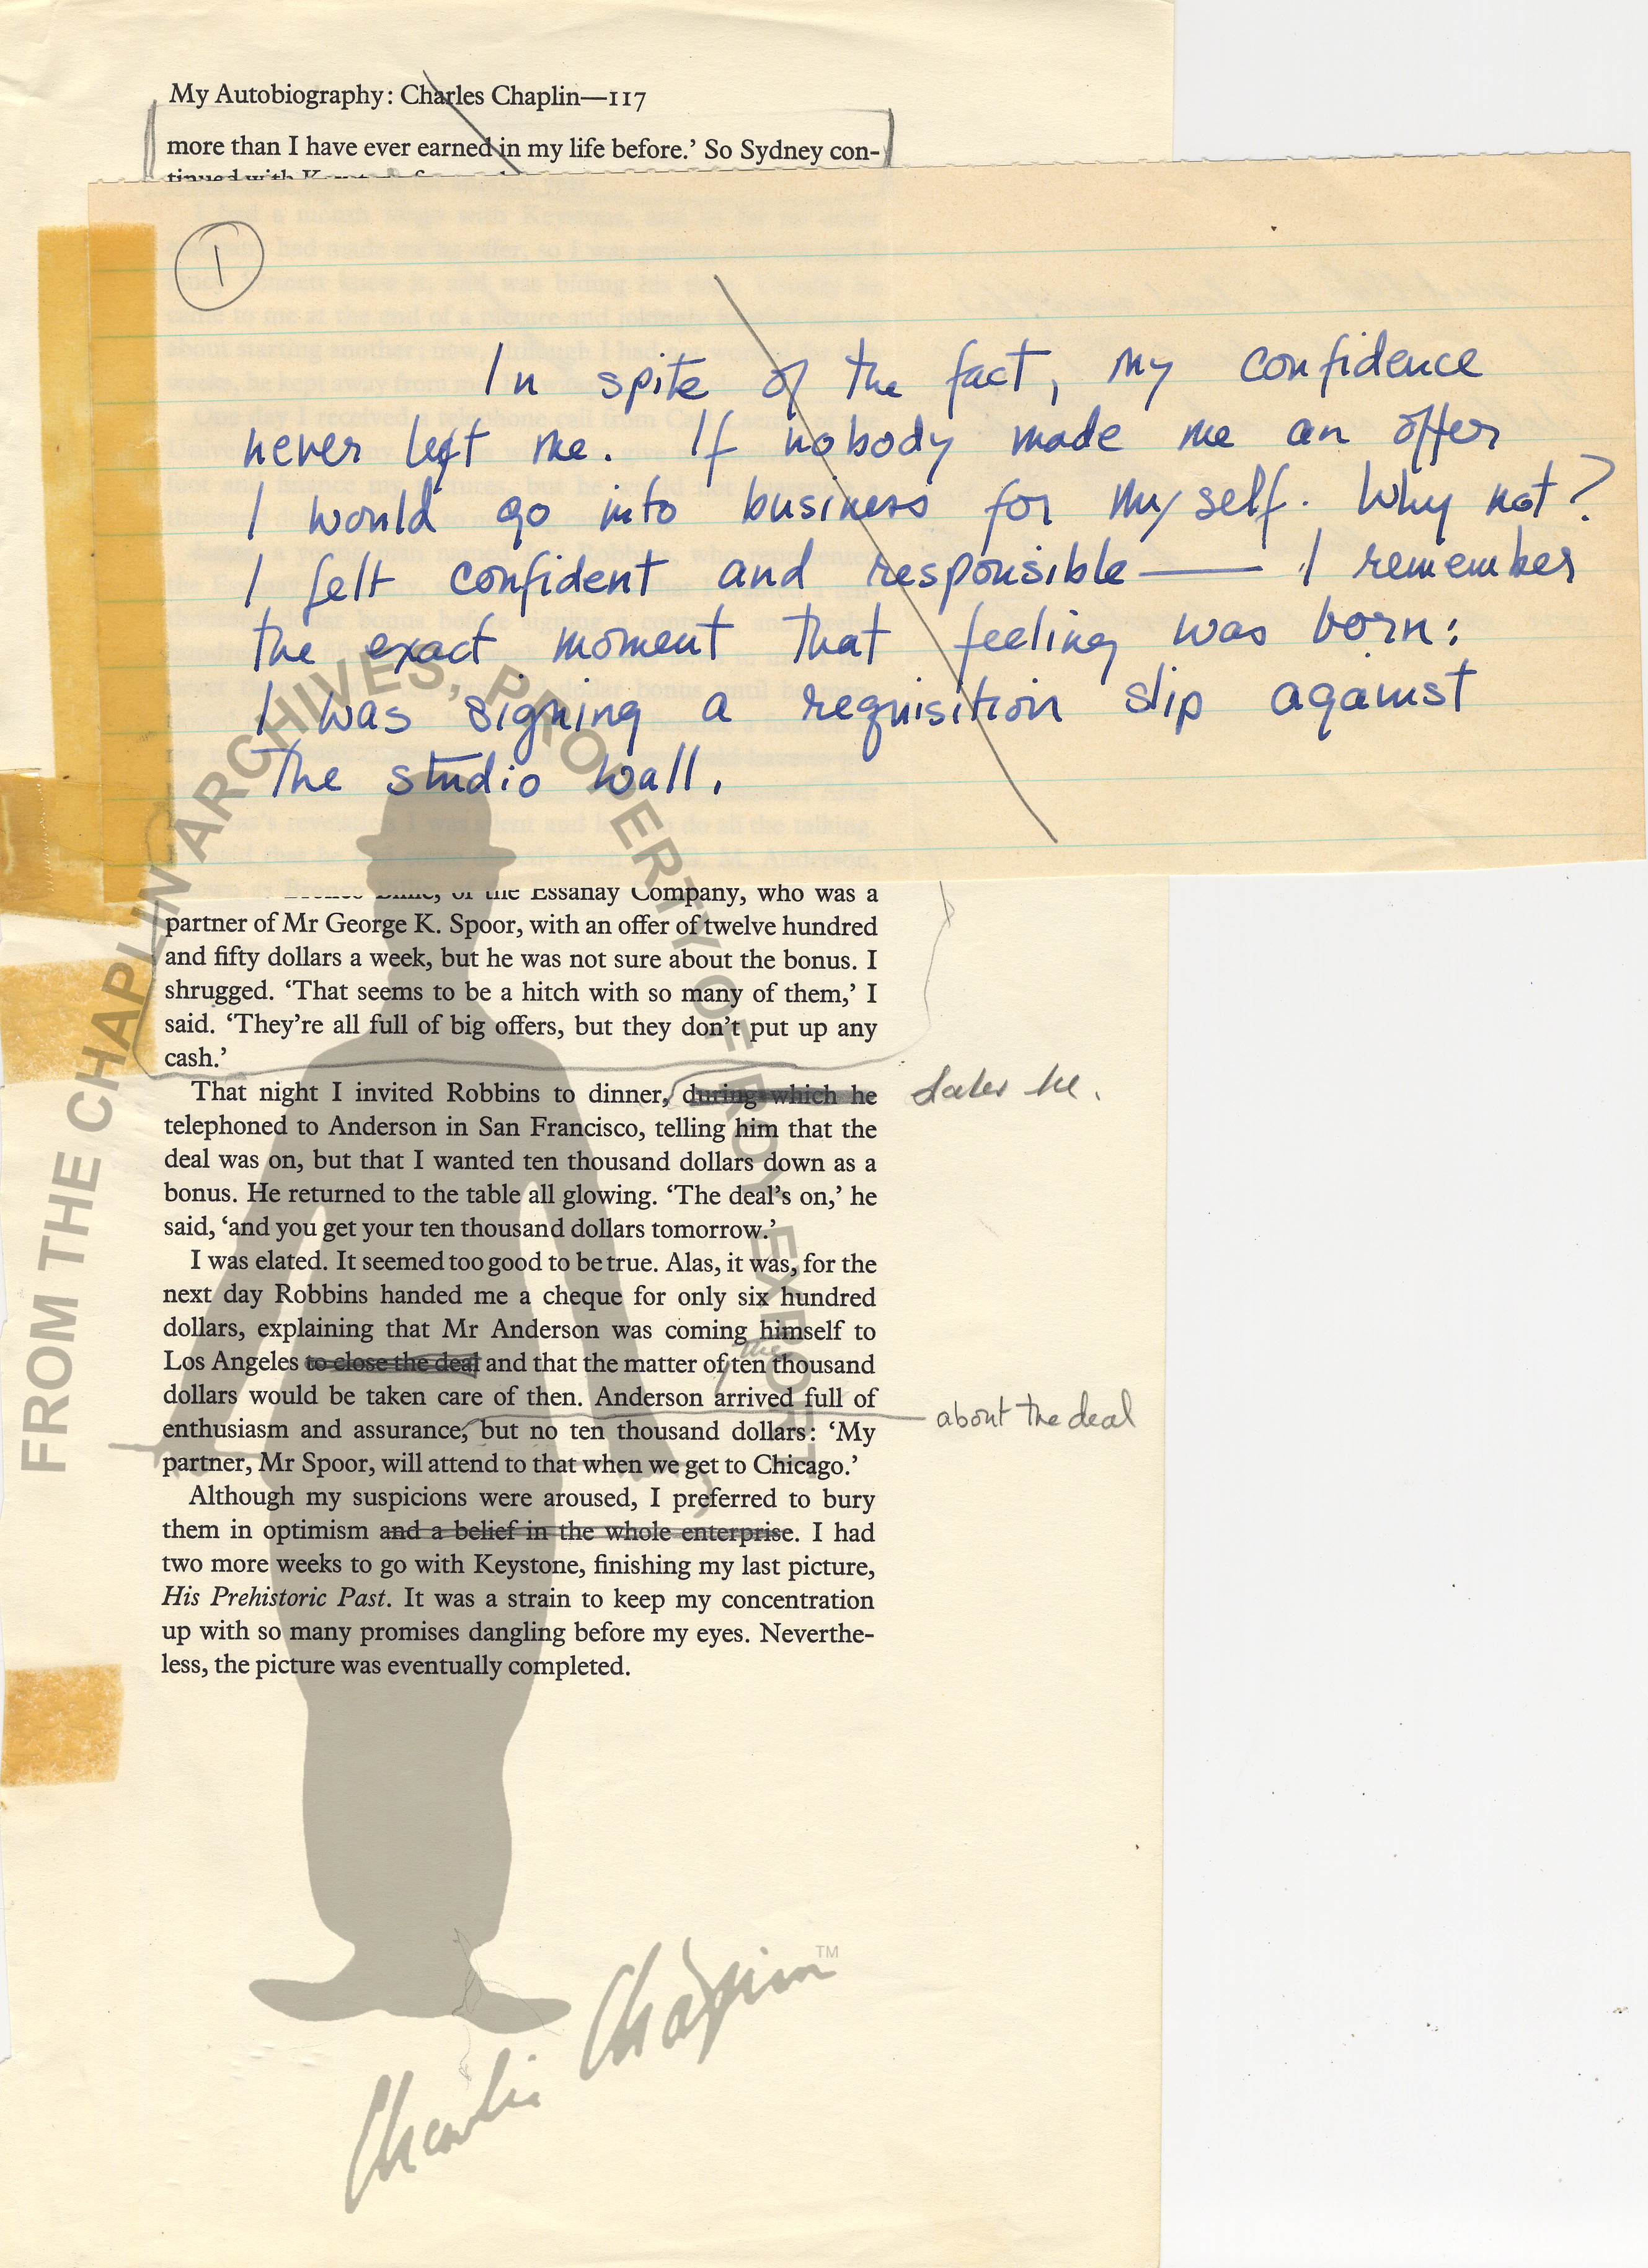 My Autobiography: Charles Chaplin—117
more than I have ever earned in my life before.' So Sydney con-
tinued with
1
In spite of the fact, my confidence
never left me. If nobody made me an offer
I would go into business for myself. Why not?
I felt confident and responsible — I remember
the exact moment that feeling was born:
I was signing a requisition slip against
the studio wall.
of the Essanay Company, who was a
partner of Mr George K. Spoor, with an offer of twelve hundred
and fifty dollars a week, but he was not sure about the bonus. I
shrugged. 'That seems to be a hitch with so many of them,' I
said. 'They're all full of big offers, but they don't put up any
cash.'
That night I invited Robbins to dinner, during which he
later he.
telephoned to Anderson in San Francisco, telling him that the
deal was on, but that I wanted ten thousand dollars down as a
bonus. He returned to the table all glowing. 'The deal's on,' he
said, 'and you get your ten thousand dollars tomorrow.'
I was elated. It seemed too good to be true. Alas, it was, for the
next day Robbins handed me a cheque for only six hundred
dollars, explaining that Mr Anderson was coming himself to
the
Los Angeles to close the deal and that the matter of ten thousand
dollars would be taken care of then. Anderson arrived full of
about the deal
enthusiasm and assurance, but no ten thousand dollars: 'My
partner, Mr Spoor, will attend to that when we get to Chicago.'
Although my suspicions were aroused, I preferred to bury
them in optimism and a belief in the whole enterprise. I had
two more weeks to go with Keystone, finishing my last picture,
His Prehistoric Past. It was a strain to keep my concentration
up with so many promises dangling before my eyes. Neverthe-
less, the picture was eventually completed.
FROM THE CHAPLIN ARCHIVES, PROPERTY OF ROY EXPORT
Charlie Chaplin TM